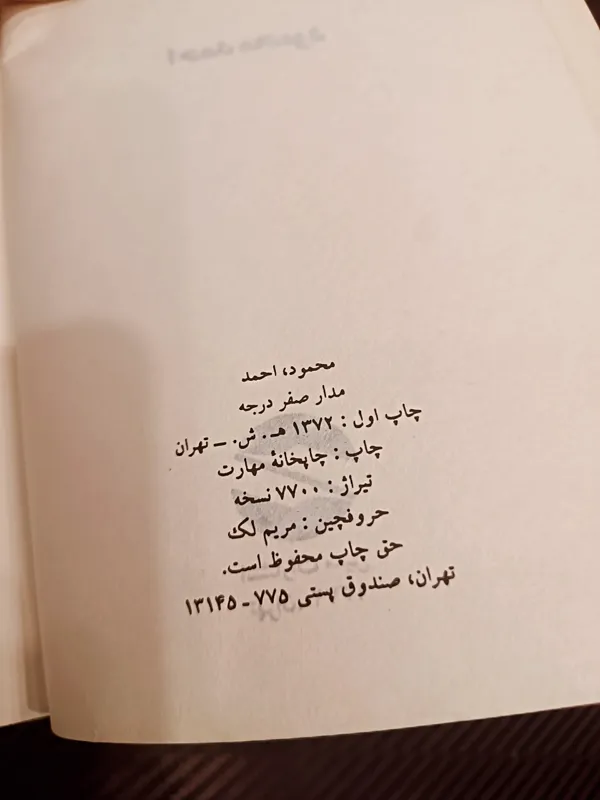 محمود، احمد
مدار صفر درجه
چاپ اول : ۱۳۷۲ هـ. ش. ــ تهران
چاپ : چاپخانهٔ مهارت
تیراژ : ۷۷۰۰ نسخه
حروفچین : مریم لک
حق چاپ محفوظ است.
تهران، صندوق پستی ۷۷۵ ـ ۱۳۱۴۵